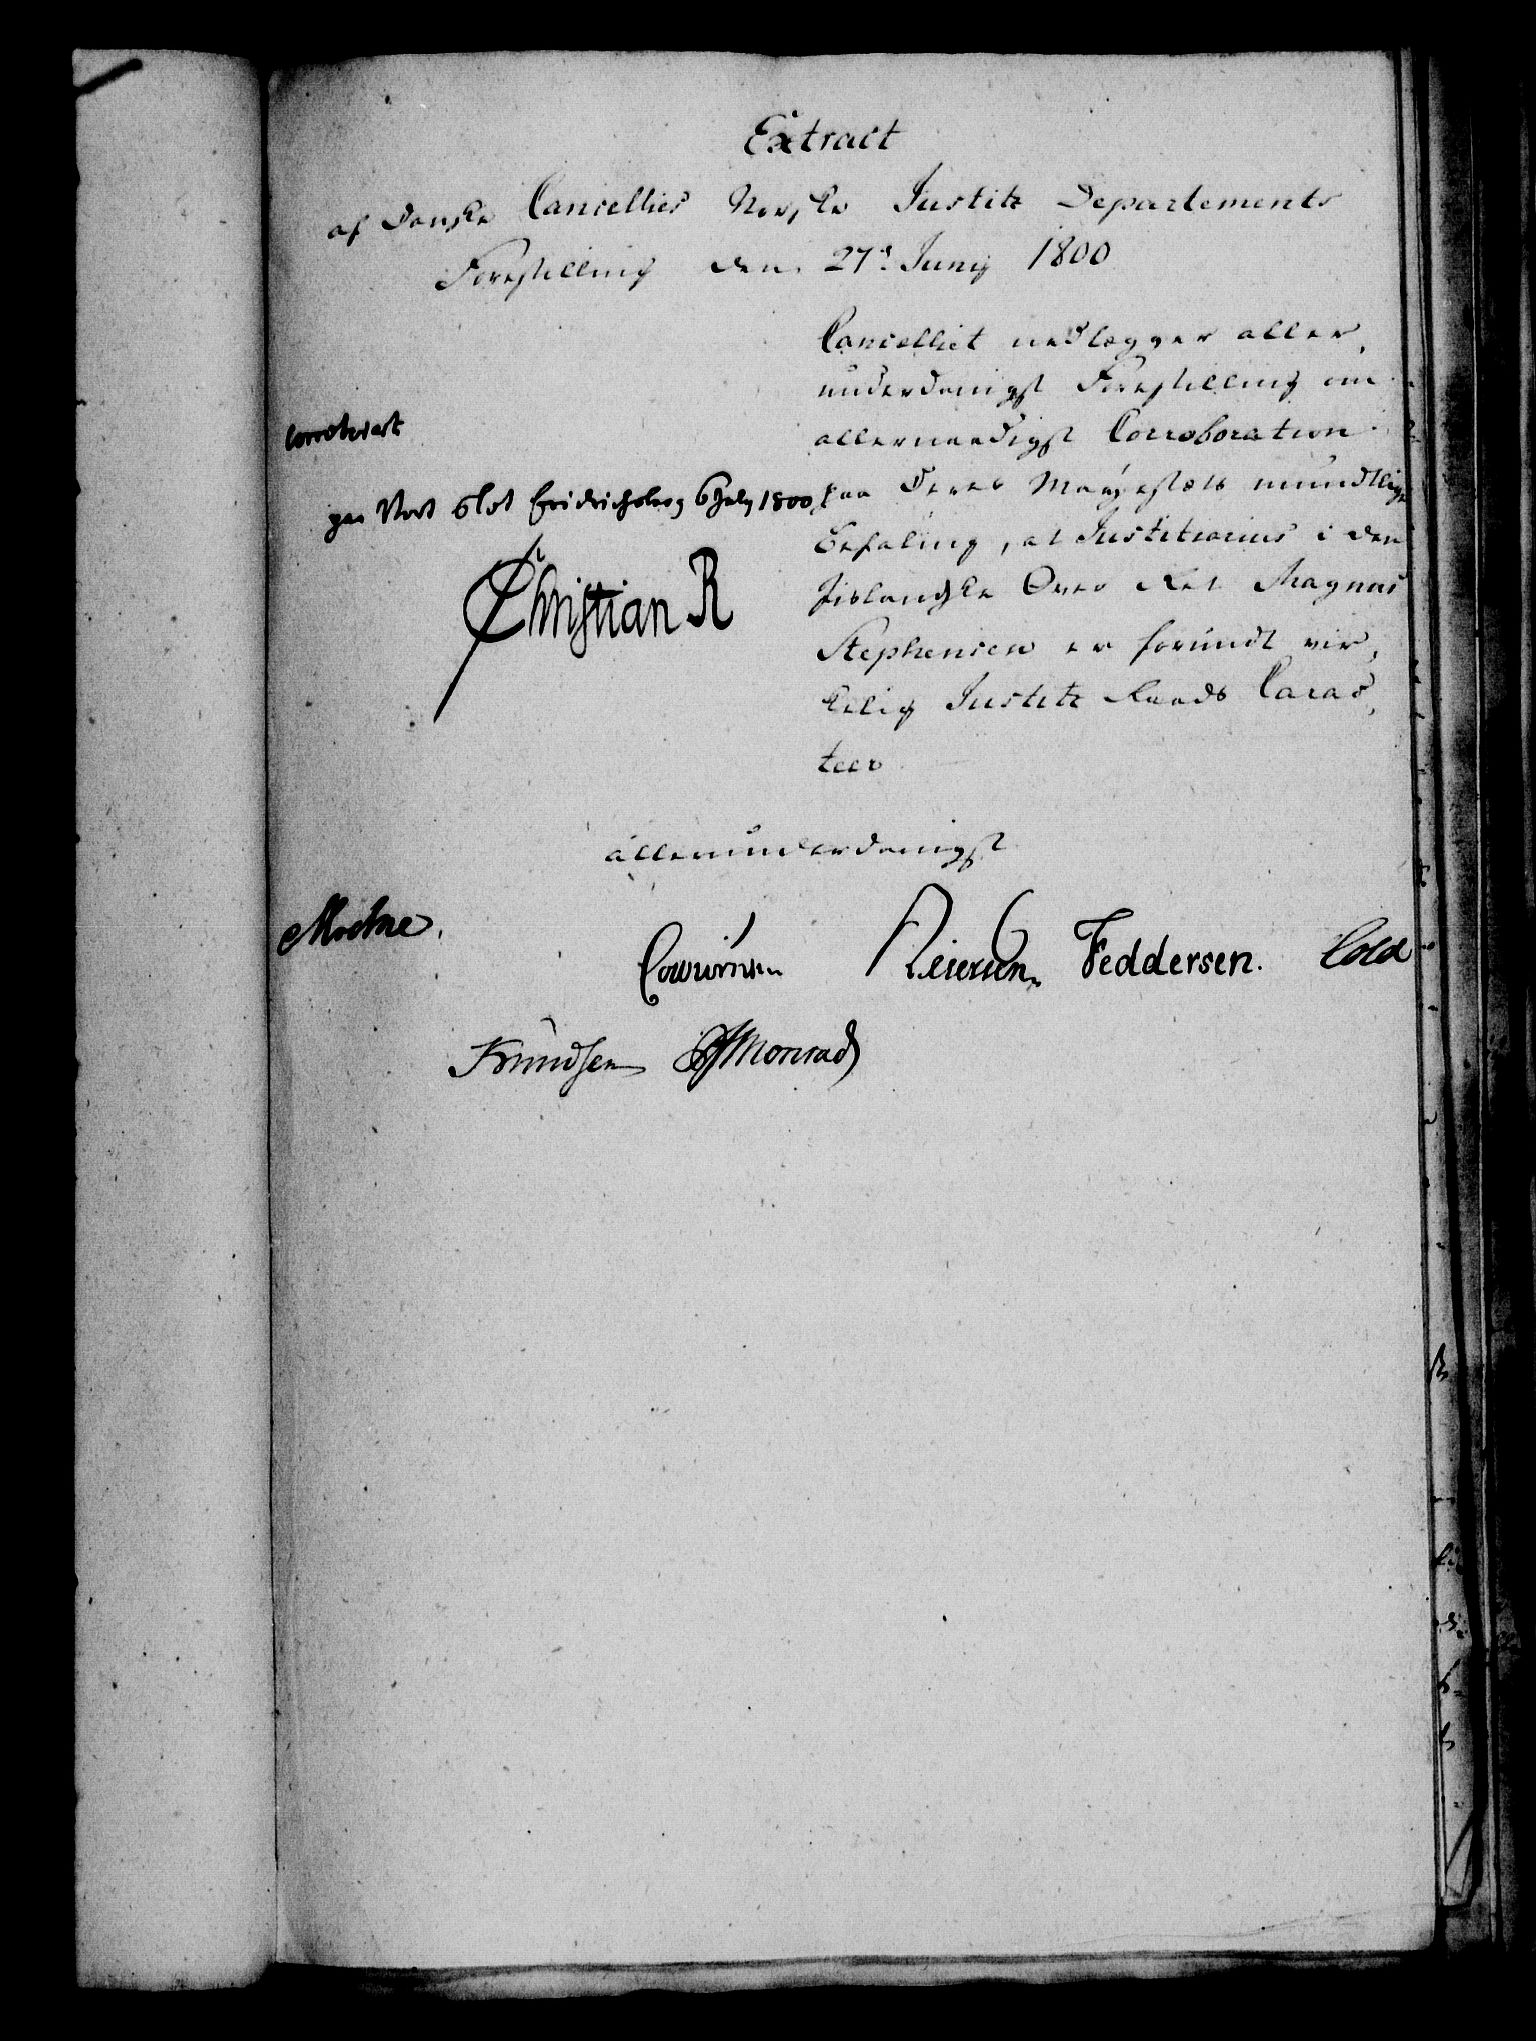 Extract
af Danske Cancellies Norske Justitz Departements
Forestilling den 27d Junij 1800
Cancelliet nedlegger aller,
underdanigst Forestilling om
allernaadigst Corroboration
paa Deres Majestæts mundtlige
Befaling, at Justitiarius i den
Jislandske Over Ret Magnus
Stephensen er forundt vir,
kelig Justitz Raads Carac,
teer
Corroborert
paa Vort Slot Fridrichsberg 6 July 1800
Christian R
allerunderdanigst
Moltke.
Cowiørnsen Reiersen. Feddersen. Cold
Knudsen Monrad